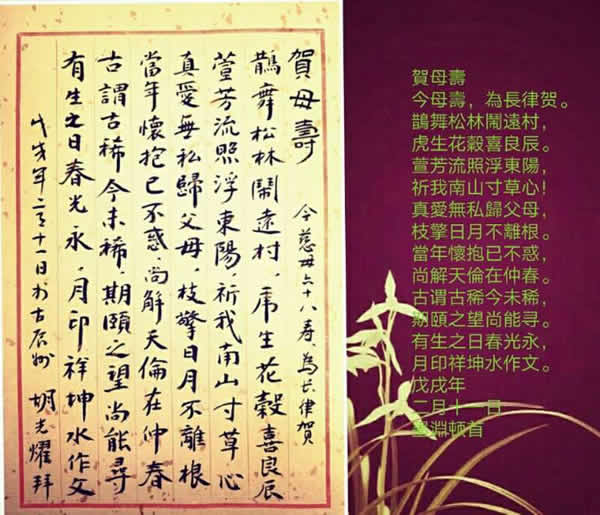 賀母壽 今慈母六十八寿、為长律賀
鵲舞松林鬧遠村，虎生花穀喜良辰
萱芳流照浮東陽，祈我南山寸草心
真愛無私歸父母，枝擎日月不離根
當年懷抱已不惑，尚解天倫在仲春
古謂古稀今未稀，期頤之望尚能尋
有生之日春光永，月印祥坤水作文
戊戌年二月十一日於古辰州 胡光耀拜
賀母壽
今母壽，為長律贺。
鵲舞松林鬧遠村，
虎生花穀喜良辰。
萱芳流照浮東陽，
祈我南山寸草心！
真愛無私歸父母，
枝擎日月不離根。
當年懷抱已不惑，
尚解天倫在仲春。
古谓古稀今未稀，
期頤之望尚能寻。
有生之日春光永，
月印祥坤水作文。
戊戌年
二月十一日
淵顿首